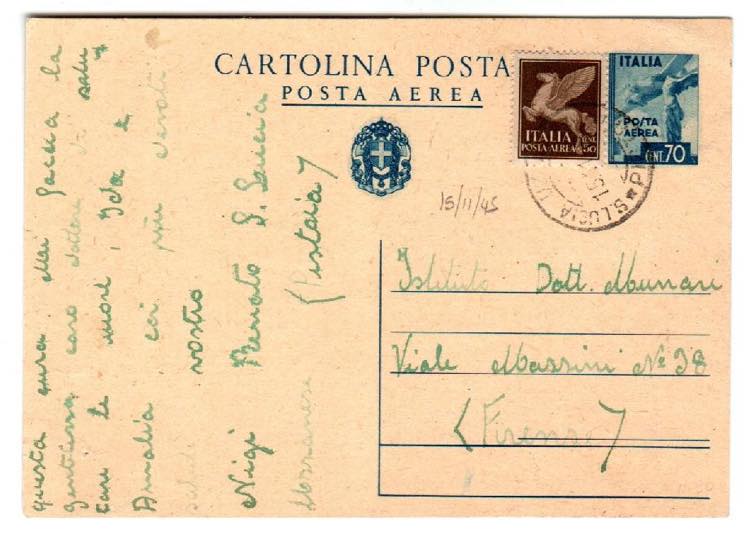 CARTOLINA POSTA
POSTA AEREA
ITALIA
POSTA-AEREA
CENT. 50
ITALIA
POSTA
AEREA
CENT. 70
S. LUCIA
15
15/11/45
Istituto Dott. Munari
Viale Massini N° 38
(Firenze)
questa cura mai Garda la
gentilezza caro dottore di salu
tare le suore, Ida e
Amalia coi più devoti
saluti vostro
Nigi Renato S. Lucia
(Pistoia)